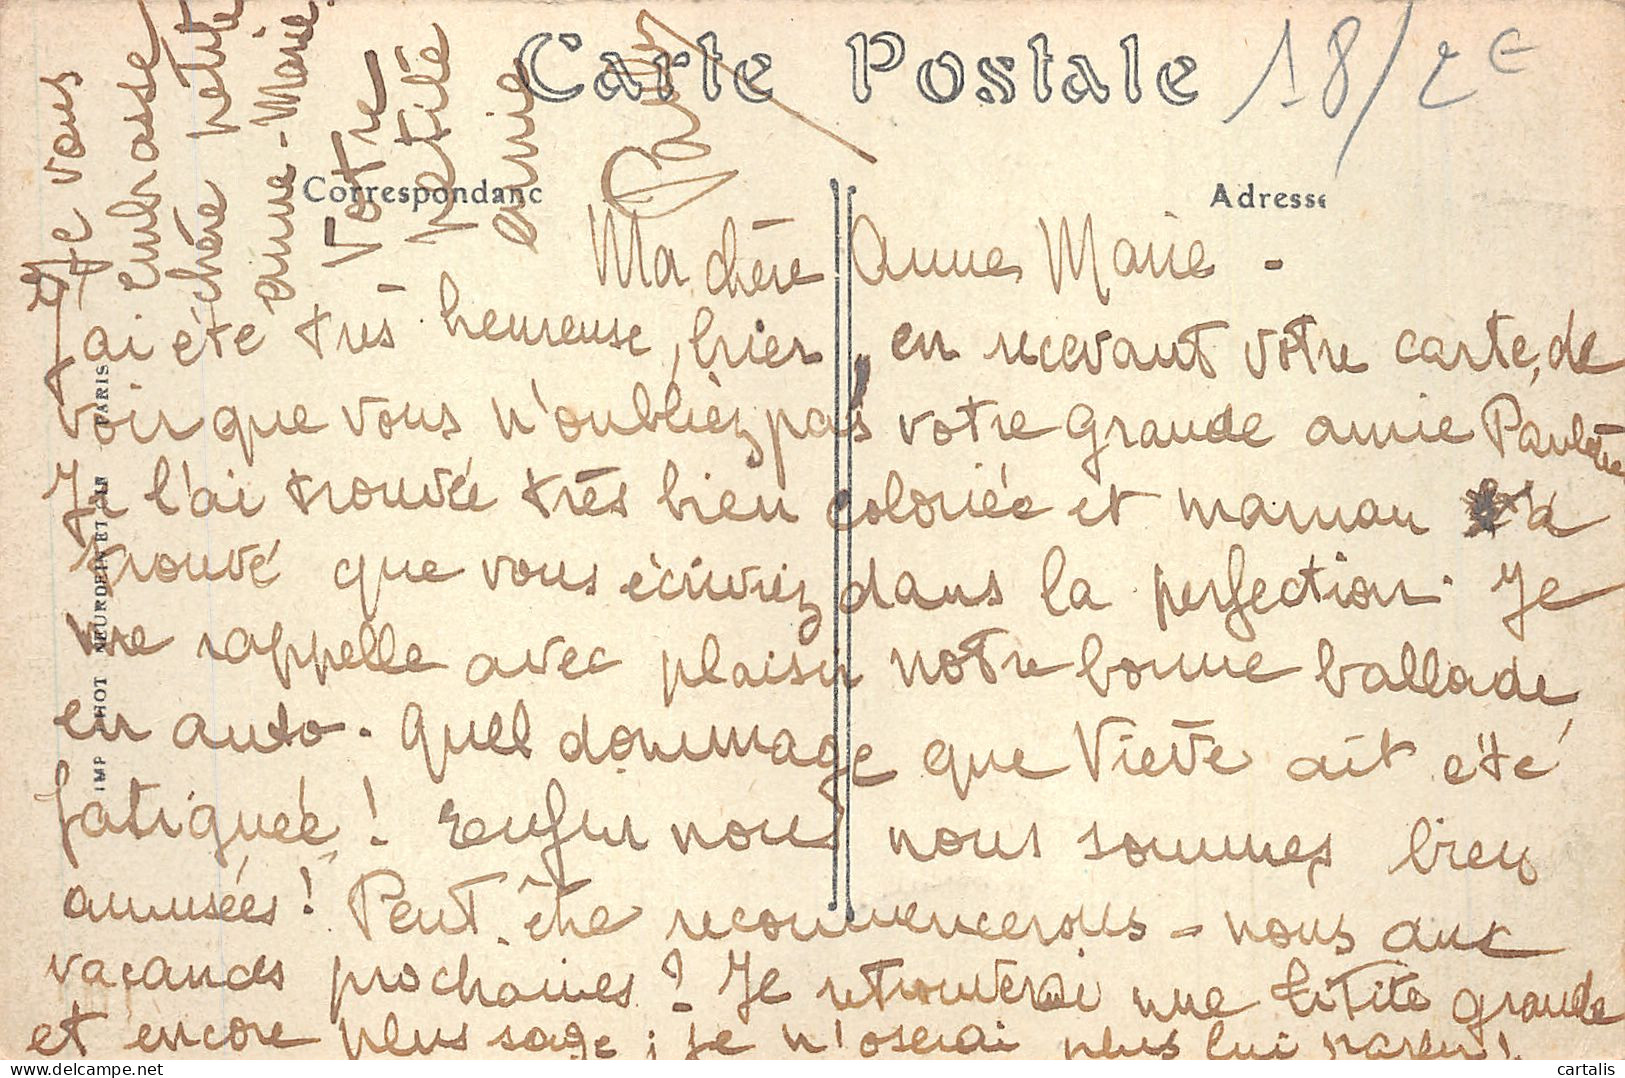 Carte Postale
18/2€
Correspondanc
Adresse
Ma chère Anne Marie -
J'ai été très heureuse, hier, en recevant votre carte, de
voir que vous n'oubliez pas votre grande amie Paulette
Je l'ai trouvée très bien coloriée et maman a
trouvé que vous écriviez dans la perfection. Je
me rappelle avec plaisir notre bonne ballade
en auto. Quel dommage que Viète ait été
fatiguée ! Enfin nous nous sommes bien
amusées ! Peut-être recommencerons-nous aux
vacances prochaines ? Je retrouverai une titite grande
et encore plus sage ; je n'oserai plus lui parler !
Je vous
embrasse
chère petite
anne-Marie.
Votre
petite
amie
IMP PHOT NEURDEIN ET CIE PARIS
cartalis